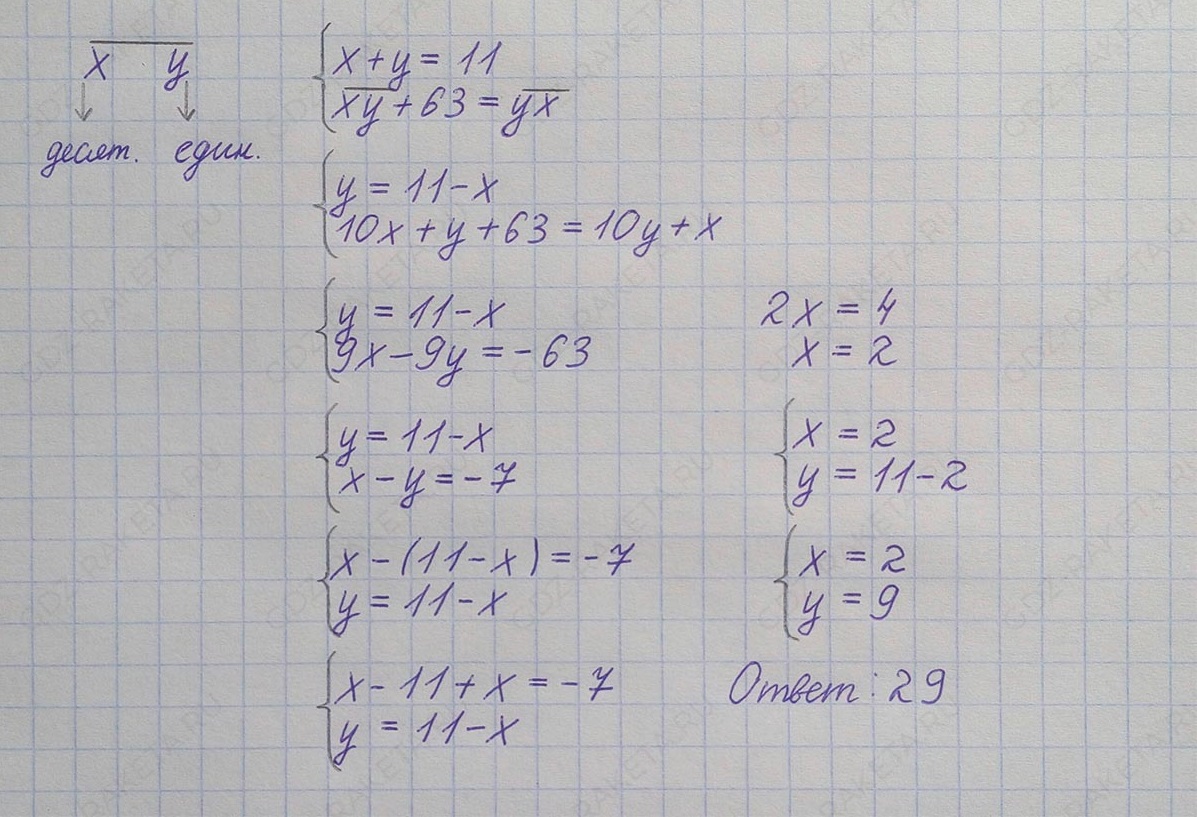 x y
десят. един.
x + y = 11
xy + 63 = yx
y = 11 - x
10x + y + 63 = 10y + x
y = 11 - x
9x - 9y = -63
y = 11 - x
x - y = -7
x - (11 - x) = -7
y = 11 - x
x - 11 + x = -7
y = 11 - x
2x = 4
x = 2
x = 2
y = 11 - 2
x = 2
y = 9
Ответ: 29
GDZ-RAKETA.RU